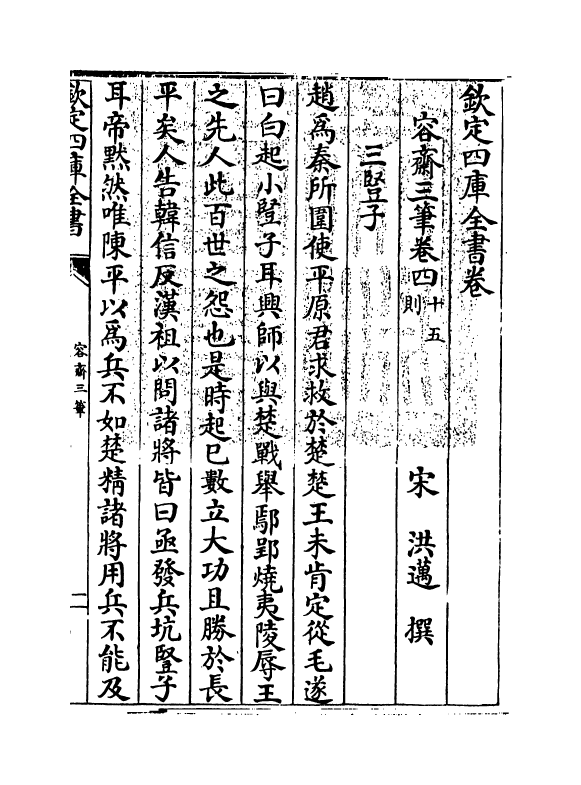 欽定四庫全書卷
容齋三筆卷四十五則 宋 洪邁 撰
三豎子
趙為秦所圍使平原君求救於楚楚王未肯定從毛遂
曰白起小豎子耳興師以與楚戰舉鄢郢燒夷陵辱王
之先人此百世之怨也是時起已數立大功且勝於長
平矣人告韓信反漢祖以問諸將皆曰亟發兵坑豎子
耳帝黙然唯陳平以為兵不如楚精諸將用兵不能及
欽定四庫全書
容齋三筆
二